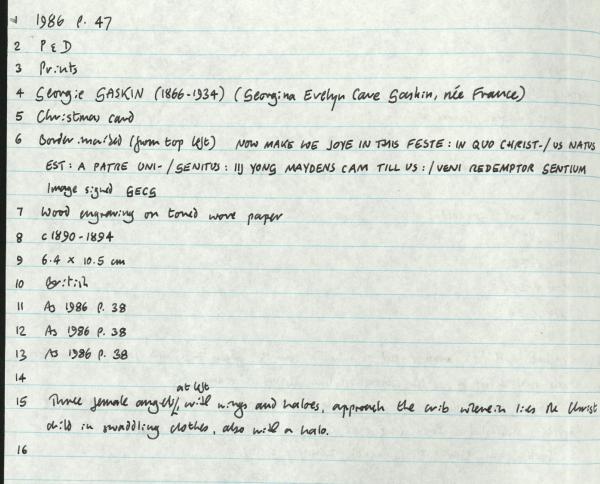 1 1986 P. 47
2 P & D
3 Prints
4 Georgie GASKIN (1866-1934) (Georgina Evelyn Cave Gaskin, née France)
5 Christmas card
6 Border inscribed (from top left) NOW MAKE WE JOYE IN THIS FESTE : IN QUO CHRIST-/US NATUS
EST : A PATRE UNI-/GENITUS : IIJ YONG MAYDENS CAM TILL US :/VENI REDEMPTOR GENTIUM
Image signed GECG
7 Wood engraving on toned wove paper
8 c1890-1894
9 6.4 x 10.5 cm
10 British
11 As 1986 P. 38
12 As 1986 P. 38
13 As 1986 P. 38
14
at left
15 Three female angels, with wings and haloes, approach the crib wherein lies the Christ
child in swaddling clothes, also with a halo.
16